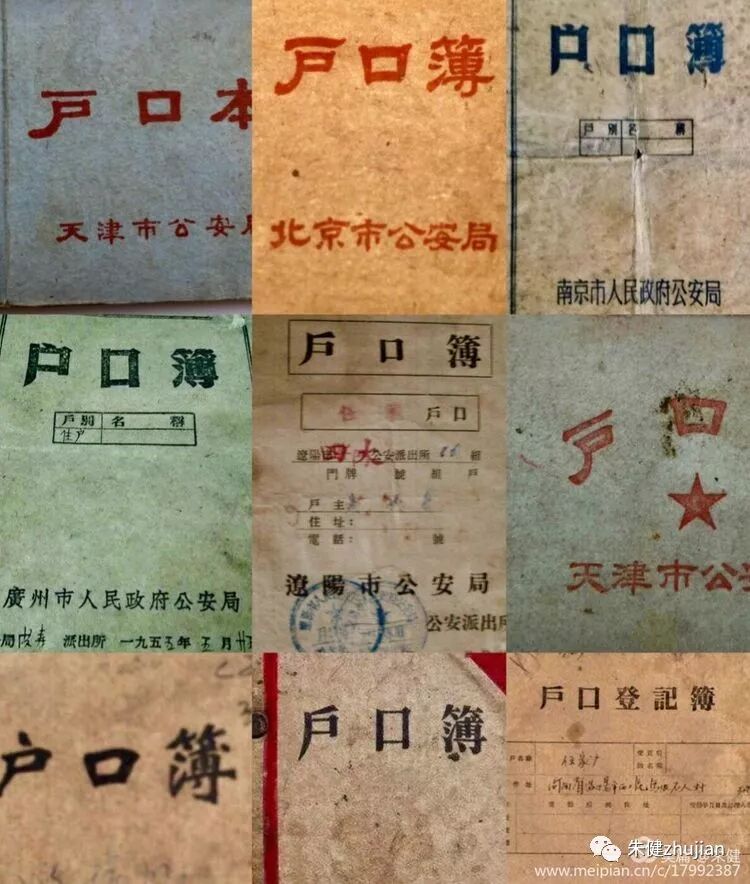 戶口本
天津市公安局
戶口簿
北京市公安局
户口簿
戶別名稱
南京市人民政府公安局
户口簿
戶別名稱
住户
廣州市人民政府公安局
派出所 一九五五年五月
戶口簿
戶口
遼陽
公安派出所 組
門牌 號 組 戶
戶主
住址：
電話： 號
遼陽市公安局
公安派出所
戶口
天津市公
户口簿
戶口簿
戶口登記簿
朱健zhujian
美篇@朱健
www.meipian.cn/c/17992387